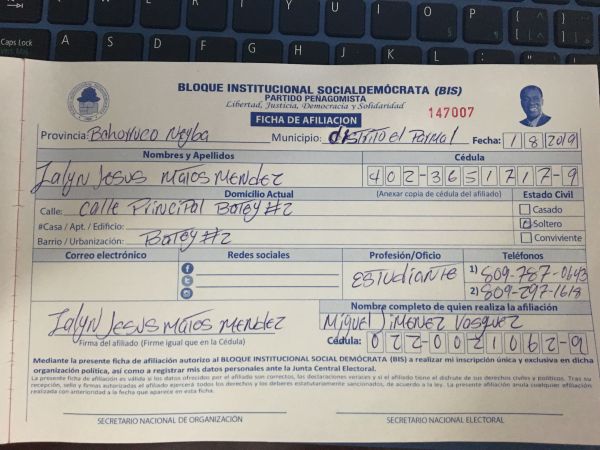 Caps Lock
A S D F G H J K L
Y U I O P
BLOQUE INSTITUCIONAL SOCIALDEMÓCRATA (BIS)
PARTIDO PEÑAGOMISTA
Libertad, Justicia, Democracia y Solidaridad
FICHA DE AFILIACION
147007
Provincia: Bahoruco Neyba Municipio: distrito el Palmal Fecha: 1 8 2019
Nombres y Apellidos Cédula
Jalyn Jesus Matos Mendez 402-3651717-9
Domicilio Actual (Anexar copia de cédula del afiliado) Estado Civil
Calle: Calle Principal Batey #2 Casado
#Casa / Apt. / Edificio: Soltero
Barrio / Urbanización: Batey #2 Conviviente
Correo electrónico Redes sociales Profesión/Oficio Teléfonos
Estudiante 1) 809-787-0643
2) 809-297-1618
Nombre completo de quien realiza la afiliación
Jalyn Jesus Matos Mendez Miguel Jimenez Vasquez
Firma del afiliado (Firme igual que en la Cédula) Cédula: 022-0021062-9
Mediante la presente ficha de afiliación autorizo al BLOQUE INSTITUCIONAL SOCIAL DEMÓCRATA (BIS) a realizar mi inscripción única y exclusiva en dicha
organización política, así como a registrar mis datos personales ante la Junta Central Electoral.
La presente ficha de afiliación es válida si los datos ofrecidos por el afiliado son correctos, las declaraciones veraces y si el afiliado tiene el disfrute de sus derechos civiles y políticos. Tras su
recepción, sello y firmas autorizadas el afiliado ejercerá todos los derechos y los deberes estatutariamente sancionados, de acuerdo a la ley. La presente afiliación anula cualquier afiliación
realizada con anterioridad a la fecha que aparece en esta ficha.
SECRETARIO NACIONAL DE ORGANIZACIÓN SECRETARIO NACIONAL ELECTORAL